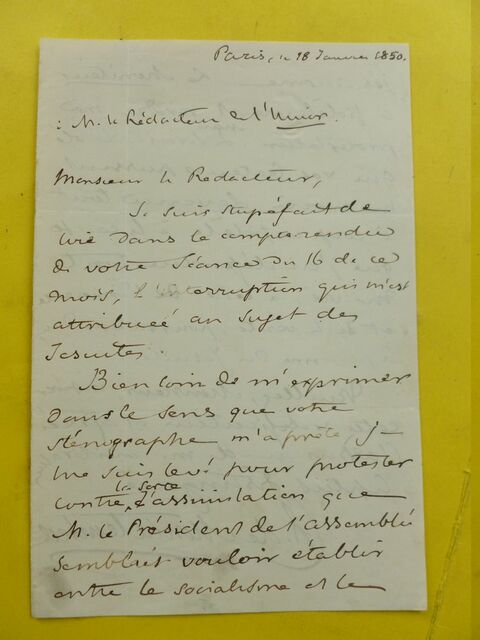 Paris, le 18 Janvier 1850.
: M. le Rédacteur de l'Union.
Monsieur le Redacteur,
Je suis stupéfait de
lire dans le compte rendu
de votre Séance du 16 de ce
mois, l'interruption qui m'est
attribuée au sujet des
Jesuites.
Bien loin de m'exprimer
dans le sens que votre
sténographe m'a prêté, je
me suis levé pour protester
contre la sorte d'assimilation que
M. le Président de l'assemblée
semblait vouloir établir
entre le socialisme et le